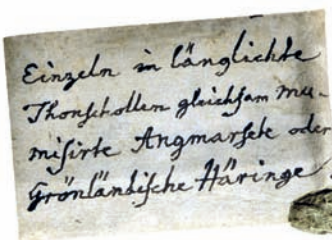 Einzeln in länglichte
Thonschollen gleichsam mu-
misirte Angmarsete oder
Grönländische Häringe.